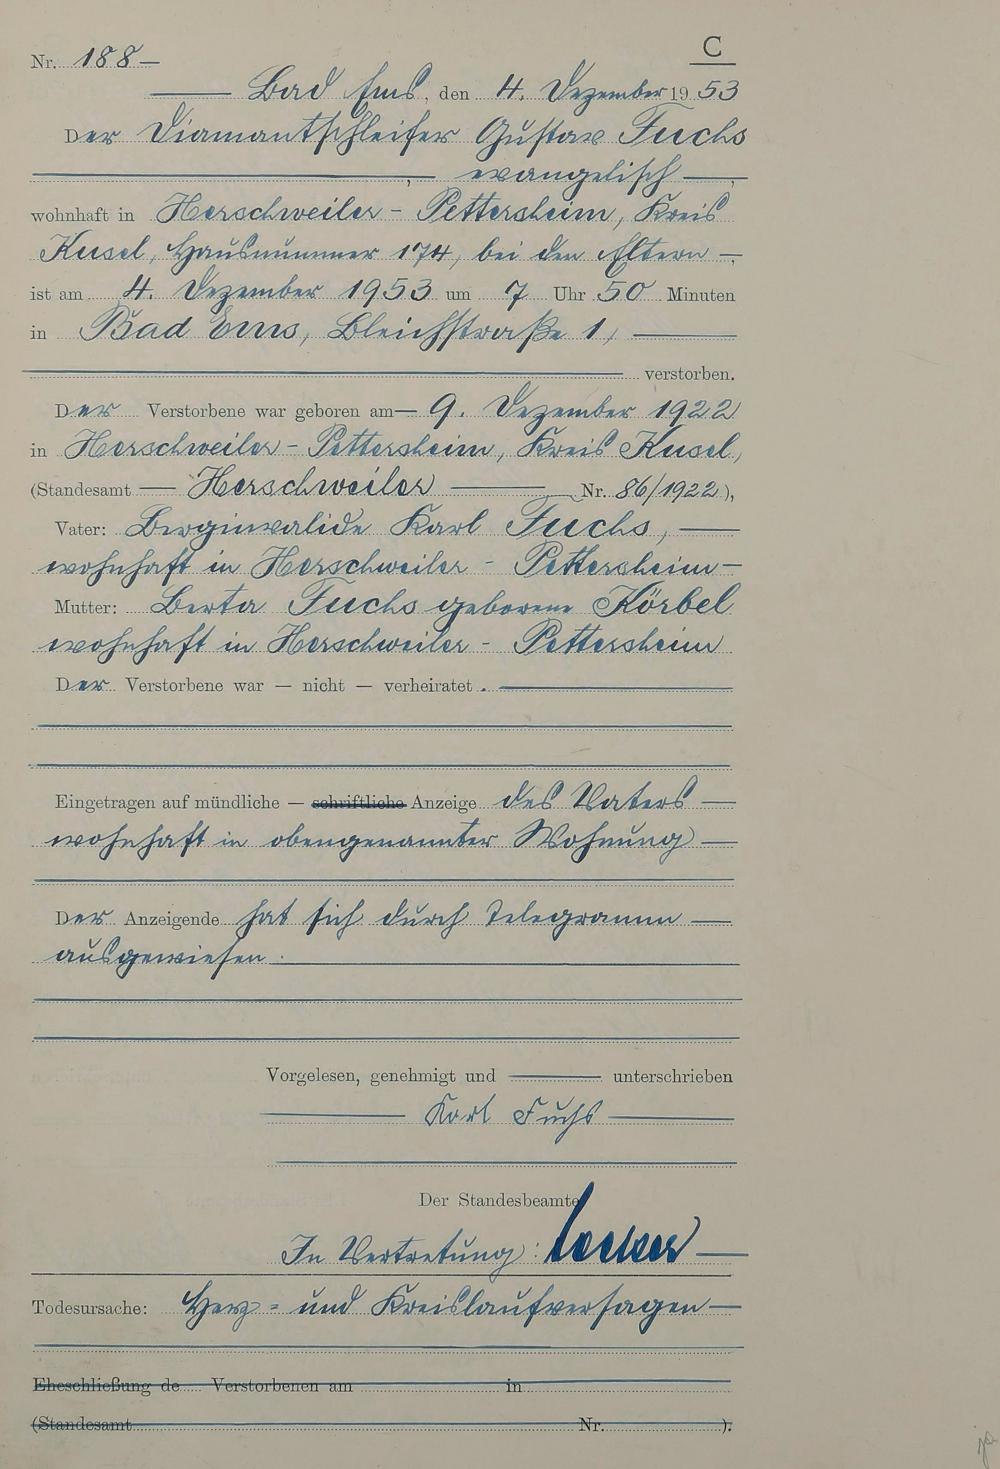 C
Nr. 188 —
Bad Ems, den 4. Dezember 1953
Der Diamantschleifer Gustav Fuchs
—, — evangelisch —,
wohnhaft in Herschweiler - Pettersheim, Kreis
Kusel, Hausnummer 174, bei den Eltern —,
ist am 4. Dezember 1953 um 7 Uhr 50 Minuten
in Bad Ems, Bleichstraße 1, —
verstorben.
Der Verstorbene war geboren am — 9. Dezember 1922
in Herschweiler - Pettersheim, Kreis Kusel,
(Standesamt — Herschweiler — Nr. 86/1922),
Vater: Berginvalide Karl Fuchs, —
wohnhaft in Herschweiler - Pettersheim —
Mutter: Berta Fuchs geborene Körbel
wohnhaft in Herschweiler - Pettersheim
Der Verstorbene war — nicht — verheiratet. —
Eingetragen auf mündliche — schriftliche Anzeige des Vaters —
wohnhaft in obengenannter Wohnung —
Der Anzeigende hat sich durch Telegramm —
ausgewiesen.
Vorgelesen, genehmigt und — unterschrieben
— Karl Fuchs —
Der Standesbeamte
In Vertretung: —
Todesursache: Herz- und Kreislaufversagen —
Eheschließung de Verstorbenen am in
(Standesamt Nr. ).